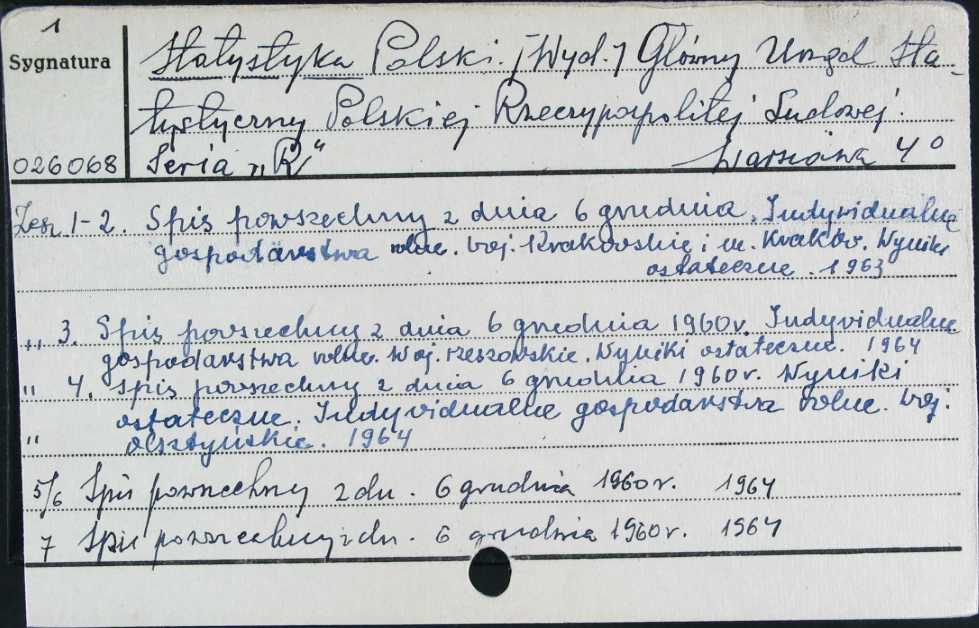 1
Sygnatura
026068
Statystyka Polski. [Wyd.] Główny Urząd Sta-
tystyczny Polskiej Rzeczypospolitej Ludowej.
Seria „R" Warszawa 4°
Zesz. 1-2. Spis powszechny z dnia 6 grudnia. Indywidualne
gospodarstwa rolne. woj. Krakowskie i m. Kraków. Wyniki
ostateczne. 1963
,, 3. Spis powszechny z dnia 6 grudnia 1960 r. Indywidualne
gospodarstwa rolne. Woj. rzeszowskie. Wyniki ostateczne. 1964
" 4. Spis powszechny z dnia 6 grudnia 1960 r. Wyniki
ostateczne. Indywidualne gospodarstwa rolne. woj.
" olsztyńskie. 1964
5/6 Spis powszechny z dn. 6 grudnia 1960 r. 1964
7 Spis powszechny z dn. 6 grudnia 1960 r. 1964